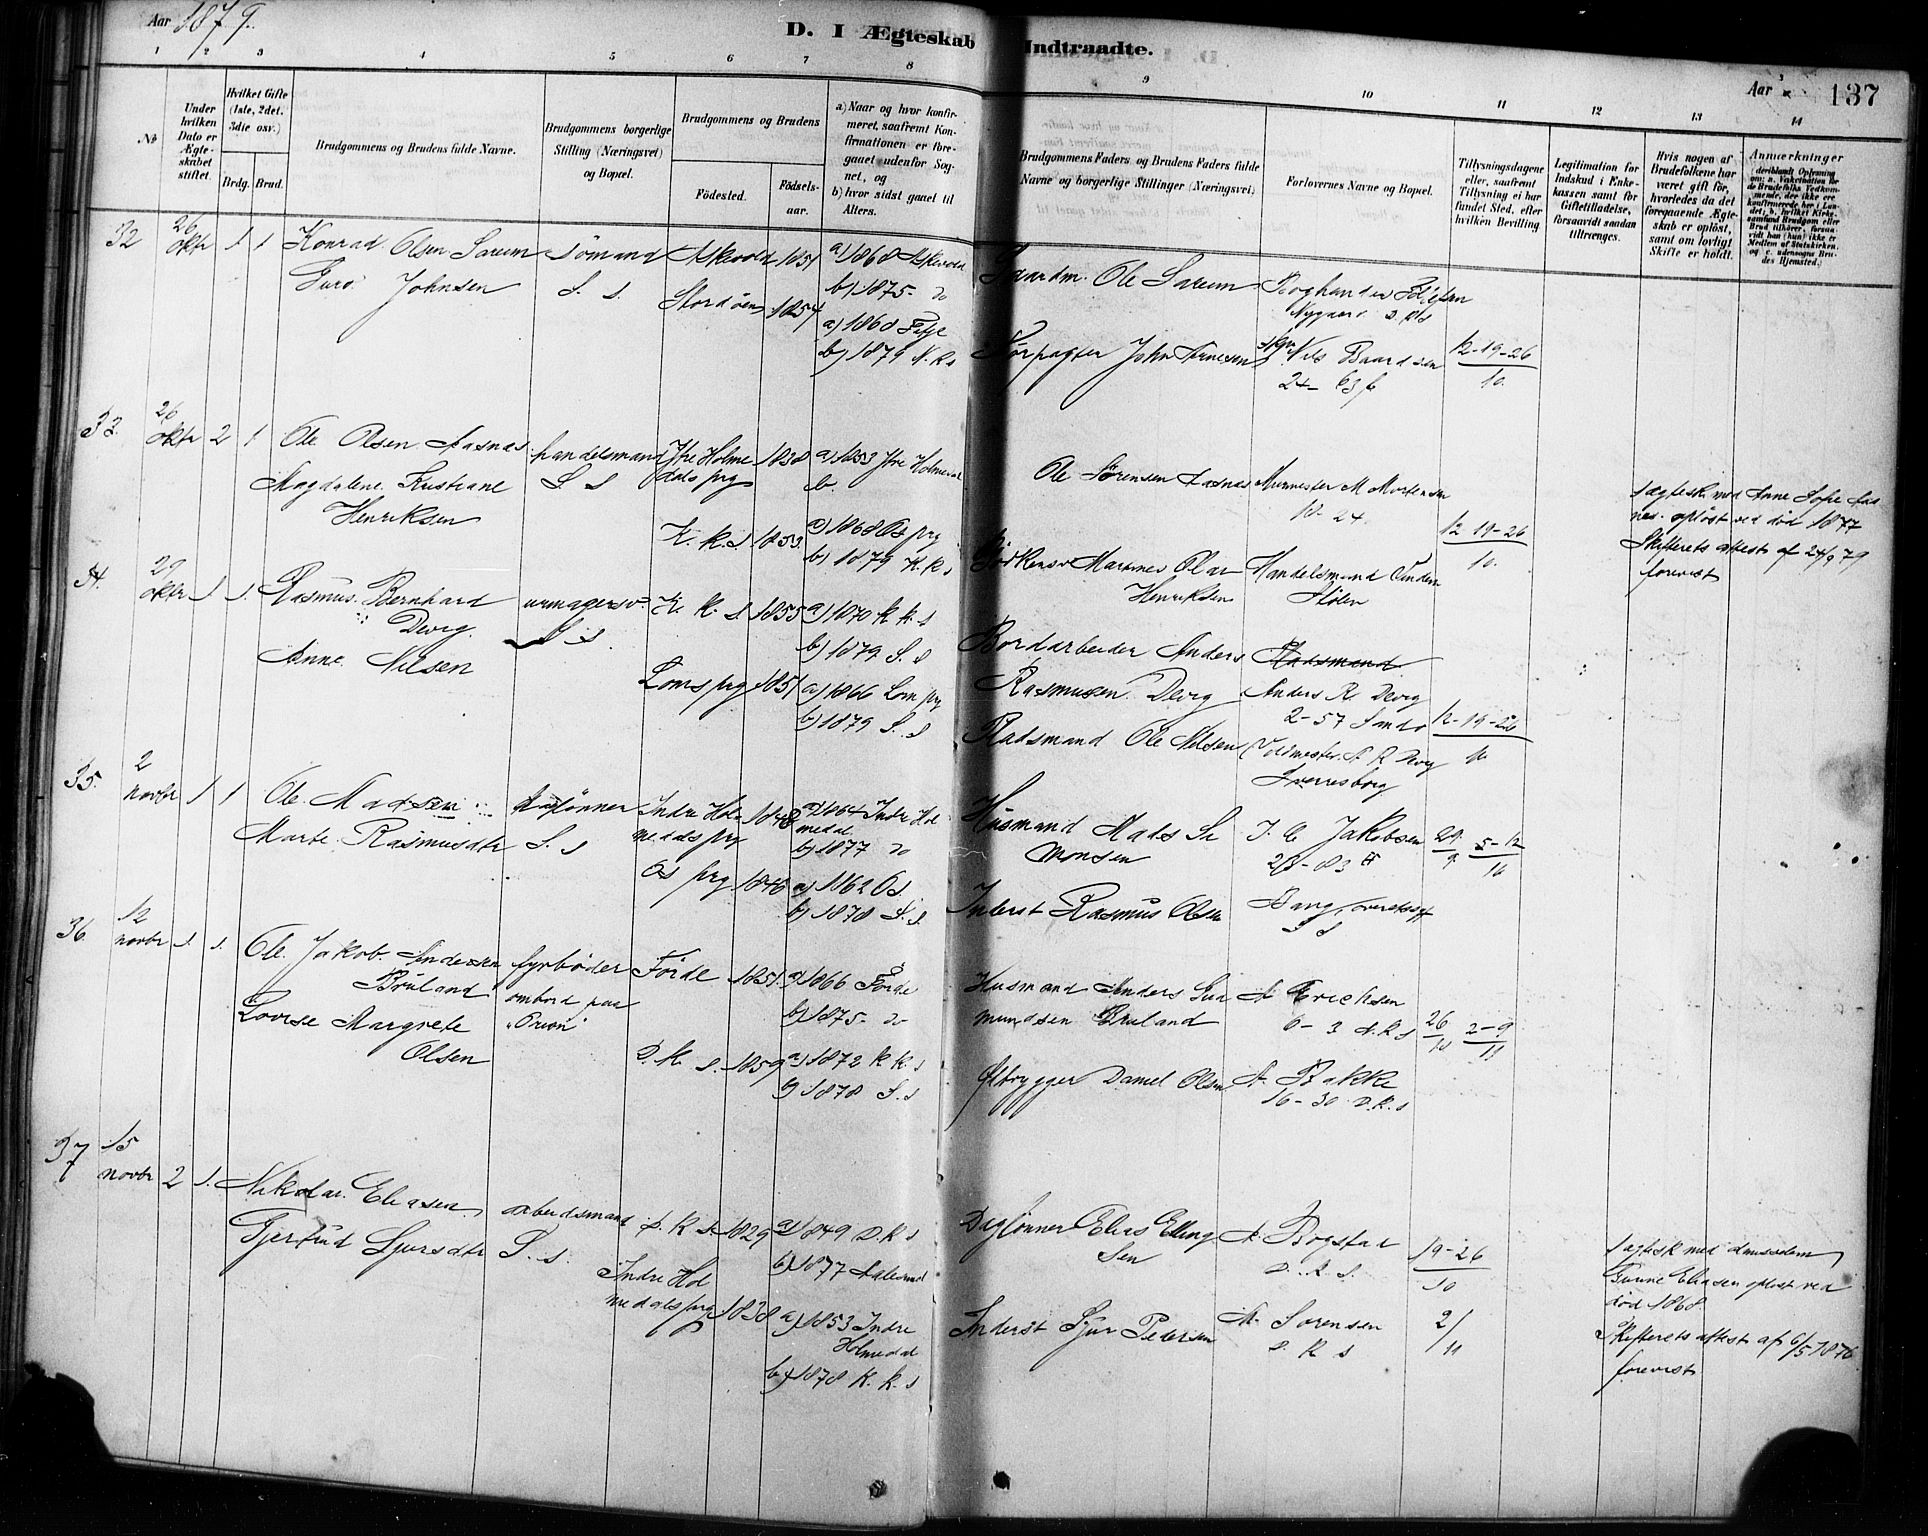 Aar 1879.
D. I Ægteskab Indtraadte.
Aar
137
1 2 3 4 5 6 7 8 9 10 11 12 13 14
No
Under hvilken Dato er Ægteskabet stiftet.
Hvilket Gifte (1ste, 2det, 3die osv.)
Brdg. Brud.
Brudgommens og Brudens fulde Navne.
Brudgommens borgerlige Stilling (Næringsvei) og Bopæl.
Brudgommens og Brudens
Födested.
Födselsaar.
a) Naar og hvor konfirmeret, saafremt Konfirmationen er foregaaet udenfor Sognet, og
b) hvor sidst gaaet til Alters.
Brudgommens Faders og Brudens Faders fulde Navne og borgerlige Stillinger (Næringsvei)
Forlovernes Navne og Bopæl.
Tillysningsdagene eller, saafremt Tillysning ei har fundet Sted, efter hvilken Bevilling
Legitimation for Indskud i Enkekassen samt for Giftetilladelse, forsaavidt saadan tiltrænges.
Hvis nogen af Brudefolkene har været gift för, hvorledes da det foregaaende Ægteskab er oplöst, samt om lovligt Skifte er holdt.
Anmærkninger
32 26 oktr 1 1
Konrad Olsen Sarem
Guro Johnsen
sömand
S. s.
Askevold 1851
Stordöen 1854
a) 1868 Askevold
b) 1875 do
a) 1868 Fitje
b) 1879 N. K s
Gaardm. Ole Sarem
John Arnesen
Nygaard D. K s
Nils Baardsen
24- 63 b
12-19-26
10.
33. 26 oktr 2 1
Ole Olsen Aasnes
Magdalene Kristiane
Henriksen
handelsmand
S. s
Ytre Holmedals prg 1838
K. K. s. 1853.
a) 1853 Ytre Holmedal
b.
a) 1868 Os prg
b) 1879 K. K s
Ole Sørensen Aasnes
Martines Olai
Henriksen
M Mortensen
10- 24.
Handelsmand
Stölen
12 19-26
10.
1 ægtesk. med Anne Sofie Aasnes oplöst ved död 1877
Skifterets attest af 24/9 79
forevist
34. 29 oktr 1 1.
Rasmus Bernhard
Devig.
Anne Nilsen
urmagersv.
S s
K. K. s 1855
Loms prg 1851
a) 1870 K K. s
b) 1879 S. s
a) 1866 Lom prg
b) 1879 S. s
Bordarbeider Anders
Rasmusen Devig
Pladsmand Ole Nilsen
Pladsmand
Anders R Devig
2-57
A R Devig
Sverresborg
12-19-26
10
35. 2 novbr 1 1
Ole Madsen
Marte Rasmusdtr
S. s
Indre Holmedals prg 1848
Os prg 1846
a) 1864 Indre Holmedal
b) 1877 do
a) 1862 Os
b) 1878 S. s.
Husmand Mads Simonsen
Inderst Rasmus Olsen
Jakobsen
S s
29/9 5-12
36. 12 novbr 1. 1.
Ole Jakob Andersen
Bruland
Lovise Margrete
Olsen
fyrböder
ombord paa
"Orion"
Förde 1851.
D. K. s. 1859
a) 1866 Förde
b) 1875 do
a) 1872 K K. s
b) 1878 S. s
Husmand Anders Gudmundsen Bruland
Ölbrygger Daniel Olsen
A Erichsen
6- 3 D. K s
A. Bakke
16-30 D. K. s
26/10 2-9/11
37 15 novbr 2 1.
Nikolai Eliasen
Gjertrud Sjursdtr
arbeidsmand
S. s.
D. K s. 1829
Indre Holmedals prg 1828
a) 1849 D. K s
b) 1877 Aalesund
a) 1853 Indre
Holmedal
b) 1878 K. K. s
Daglönner Elias Ellingsen
Inderst Sjur Pedersen
A. Bogstad
D. K. S.
A. Sörensen
D. K s
19-26
10
2/11
1 ægtesk med
Eliasen oplöst ved
död 1868
Skifterets attest af 6/5 1876
forevist